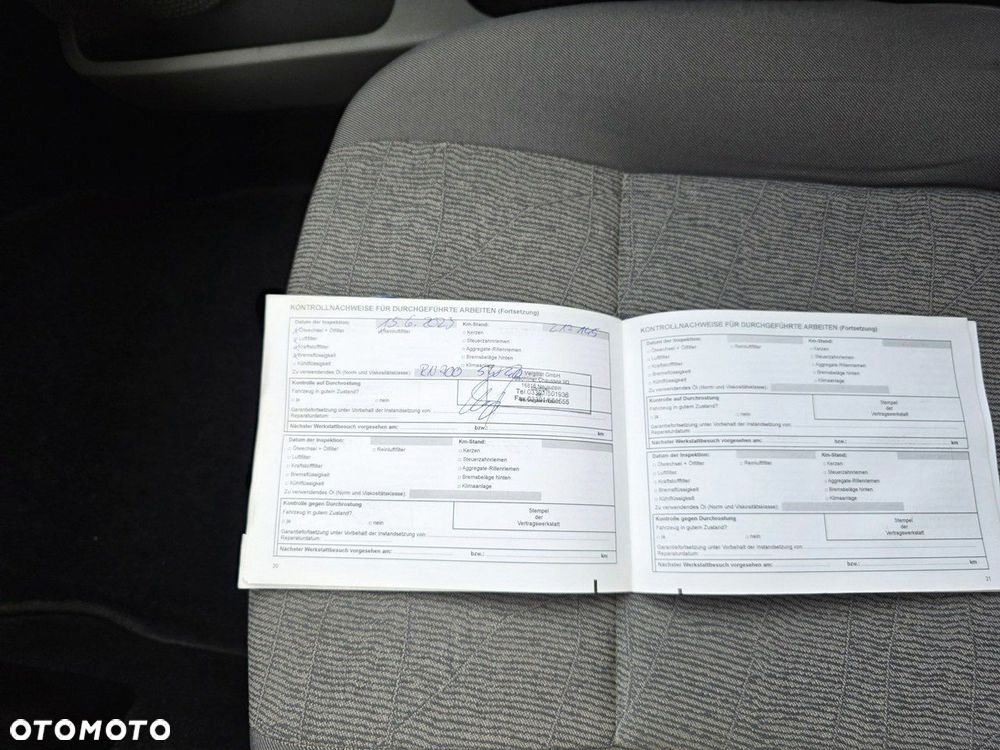 KONTROLLNACHWEISE FÜR DURCHGEFÜHRTE ARBEITEN (Fortsetzung)
Datum der Inspektion: 15.6.2023 Km-Stand:
Ölwechsel + Ölfilter Reinluftfilter Kerzen
Luftfilter Steuerzahnriemen
Kraftstofffilter Aggregate-Rillenriemen
Bremsflüssigkeit Bremsbeläge hinten
Kühlflüssigkeit
Zu verwendendes Öl (Norm und Viskositätsklasse):
Kontrolle auf Durchrostung
Fahrzeug in gutem Zustand?
ja nein
Garantiefortsetzung unter Vorbehalt der Instandsetzung von:
Reparaturdatum:
Nächster Werkstattbesuch vorgesehen am: bzw.: km
Datum der Inspektion: Km-Stand:
Ölwechsel + Ölfilter Reinluftfilter Kerzen
Luftfilter Steuerzahnriemen
Kraftstofffilter Aggregate-Rillenriemen
Bremsflüssigkeit Bremsbeläge hinten
Kühlflüssigkeit Klimaanlage
Zu verwendendes Öl (Norm und Viskositätsklasse):
Kontrolle gegen Durchrostung
Fahrzeug in gutem Zustand?
ja nein
Stempel
der
Vertragswerkstatt
Garantiefortsetzung unter Vorbehalt der Instandsetzung von:
Reparaturdatum:
Nächster Werkstattbesuch vorgesehen am: bzw.: km
20
KONTROLLNACHWEISE FÜR DURCHGEFÜHRTE ARBEITEN (Fortsetzung)
Datum der Inspektion: Km-Stand:
Ölwechsel + Ölfilter Reinluftfilter Kerzen
Luftfilter Steuerzahnriemen
Kraftstofffilter Aggregate-Rillenriemen
Bremsflüssigkeit Bremsbeläge hinten
Kühlflüssigkeit Klimaanlage
Zu verwendendes Öl (Norm und Viskositätsklasse):
Kontrolle auf Durchrostung
Fahrzeug in gutem Zustand?
ja nein
Stempel
der
Vertragswerkstatt
Garantiefortsetzung unter Vorbehalt der Instandsetzung von:
Reparaturdatum:
Nächster Werkstattbesuch vorgesehen am: bzw.: km
Datum der Inspektion: Km-Stand:
Ölwechsel + Ölfilter Reinluftfilter Kerzen
Luftfilter Steuerzahnriemen
Kraftstofffilter Aggregate-Rillenriemen
Bremsflüssigkeit Bremsbeläge hinten
Kühlflüssigkeit Klimaanlage
Zu verwendendes Öl (Norm und Viskositätsklasse):
Kontrolle gegen Durchrostung
Fahrzeug in gutem Zustand?
ja nein
Stempel
der
Vertragswerkstatt
Garantiefortsetzung unter Vorbehalt der Instandsetzung von:
Reparaturdatum:
Nächster Werkstattbesuch vorgesehen am: bzw.: km
21
OTOMOTO